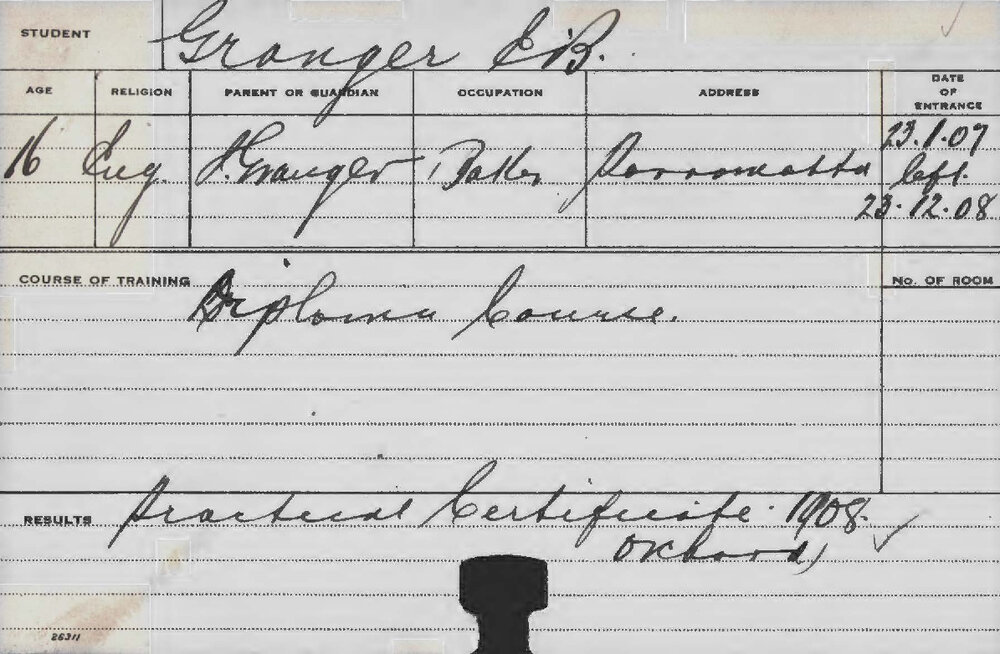 STUDENT Granger E.B.
AGE RELIGION PARENT OR GUARDIAN OCCUPATION ADDRESS DATE OF ENTRANCE
16 Eng. J. Granger Baker Parramatta 23.1.07
left.
23.12.08
COURSE OF TRAINING Diploma Course. No. OF ROOM
RESULTS Practical Certificate. 1908.
Orchard)
26311